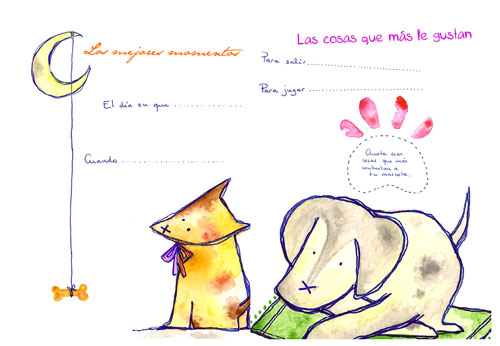 Los mejores momentos
El día en que ....................
Cuando ....................
Las cosas que más le gustan
Para salir ..............................
Para jugar ..............................
Anota esas
cosas que más
contentan a
tu mascota.